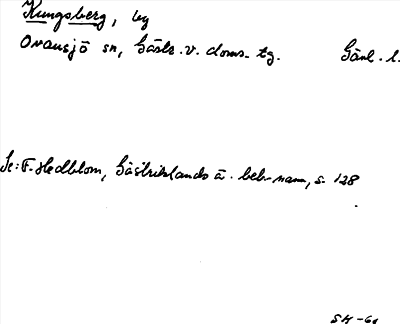 Kungsberg, by
Ovansjö sn, Gästr. v. doms. tg. Gävl. l.
Se: F. Hedblom, Gästriklands ä. beb-namn, s. 128
SH-61